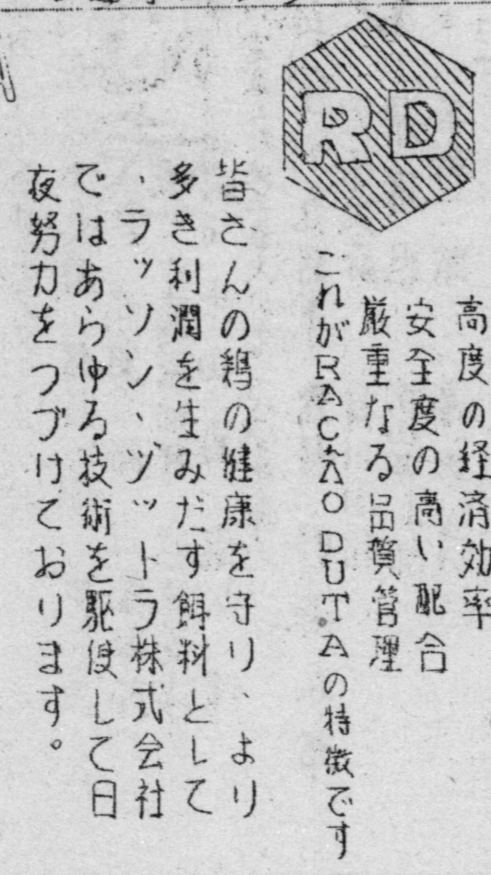 RD
高度の経済効率
安全度の高い配合
厳重なる品質管理
これがRAÇÃO DUTRAの特徴です
皆さんの鶏の健康を守り、より
多き利潤を生みだす餌料として
、ラッソン、ヅットラ株式会社
ではあらゆる技術を駆使して日
夜努力をつづけております。